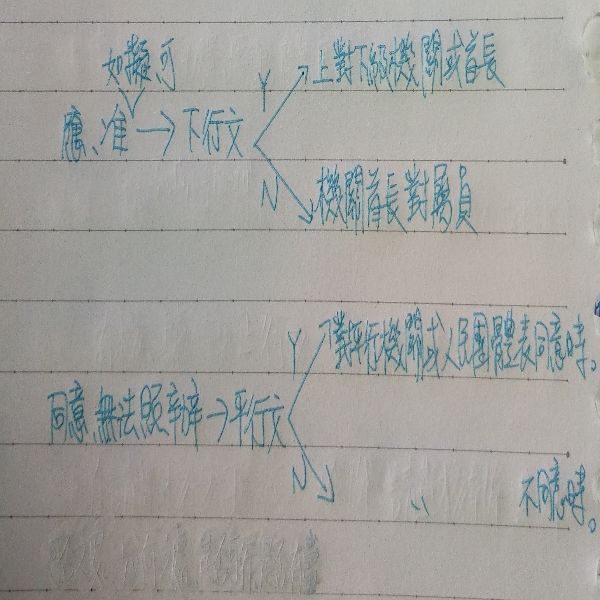 如擬可
Y 上對下級機關或首長
應、准→下行文
N 機關首長對屬員
Y 對平行機關或人民團體表同意時。
同意 無法照辦→平行文
N 〃 不同意時。